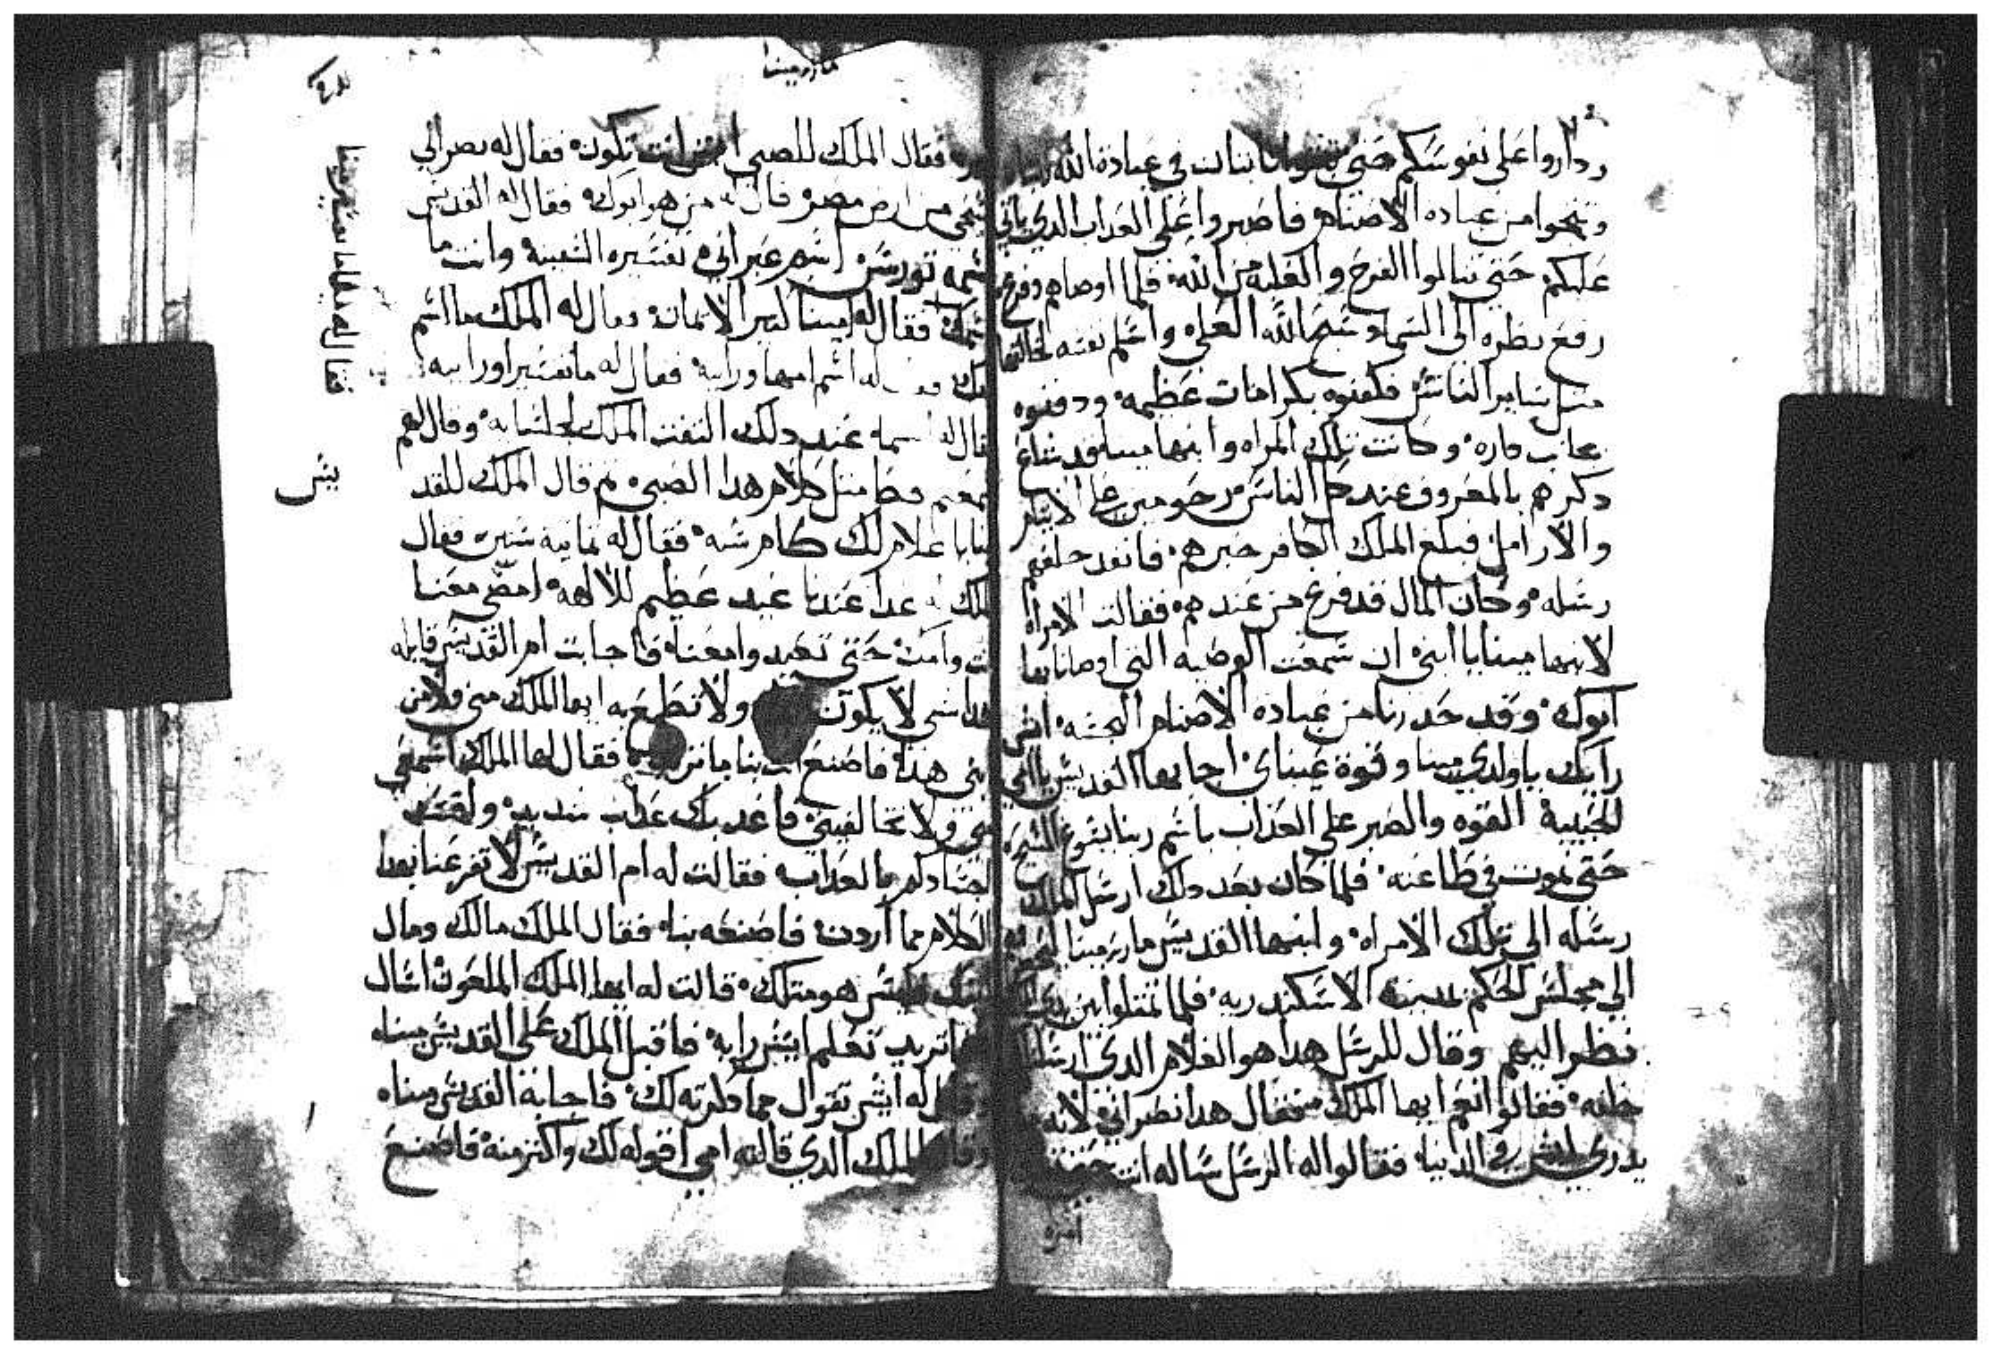 ودارواعلى نفوسكم حتى بثبات في عبادة الله
وتنجوا من عباده الاصنام فاصبروا على العداب الدي ياتي
عليكم حتى تنالوا الفرح والغلبه من الله فلما اوصاهم وفرغ
رفع نظره الى السماء وسبح الله العلي واسلم نفسه لخالقها
متل ساير الناس فكفنوه بكرامات عظيمه ودفنوه
بجانب داره وكانت تلك المراه وابنها مينا قد شاع
دكرهم بالمعروف عند كل الناس رحومين على الايتام
والارامل فبلغ الملك الكافر خبرهم فانفد خلفهم
رسله وكان المال قد فرغ من عندهم فقالت الامراه
لابنها مينا يا ابني ان سمعت الوصيه التي اوصانا بها
ابوك وقد حدرنا من عباده الاصنام النجسه ايش
رايك ياولدي مينا وقوة عيناي اجابها القديس يا امي
الحبيبة القوه والصبر على العداب باسم ربنا يسوع المسيح
حتى نموت في طاعته فلما كان بعد دلك ارسل الملك
رسله الى تلك الامراه وابنها القديس ماري مينا
الى مجلس الحكم بمدينة الاسكندريه فلما تمتلوا بين يديه
نظر اليهم وقال للرسل هدا هو الغلام الدي ارسلنا
خلفه فقالوا نعم ايها الملك فقال هدا نصراني لانه
يدري ايش في الدنيا فقالوا له الرسل ساله انت
امره
ماري مينا
فقال الملك للصبي ايش انت تكون فقال له نصراني
من ارض مصر قال له من هو ابوك فقال له القديس
اسمه تورس اسم عبراني تفسيره الشعبة وانت ما
اسمك فقال له مينا تفسير الامانه فقال له الملك ما اسم
امك له اسم امها ورابيه فقال له ما تفسير اورابيه
قال له اسمه عند دلك التفت الملك لجلسايه وقال لهم
سمعتم قط متل كلام هدا الصبي تم قال الملك للقد
يس
مينا يا غلام لك كام سنه فقال له تمانية سنين فقال
الملك له غدا عندنا عيد عظيم للالهه امضي معنا
انت وامك حتى تعيد وامعناه فاجابت ام القديس قايله
هدا شي لا يكون ولا تطمع به ايها الملك مني ولا من
ابني هدا فاصنع بنا ما تريد فقال لها الملك اسمعي
مني ولا تخالفيني فاعدبك عداب شديد واقتل
اجسادكم بالعداب فقالت له ام القديس لا تفزعنا بهدا
الكلام مما اردت فاصنعه بنا فقال الملك مالك ومال
ابنك ايش هو متلك قالت له ايها الملك الملعون اسال
ما تريد تعلم ايش رايه فاقبل الملك على القديس ميناه
وقال له ايش تقول مما دكرته لك فاجابة القديس ميناه
وقال للملك الدي قالته امي اقوله لك واكتر منه فاصنع